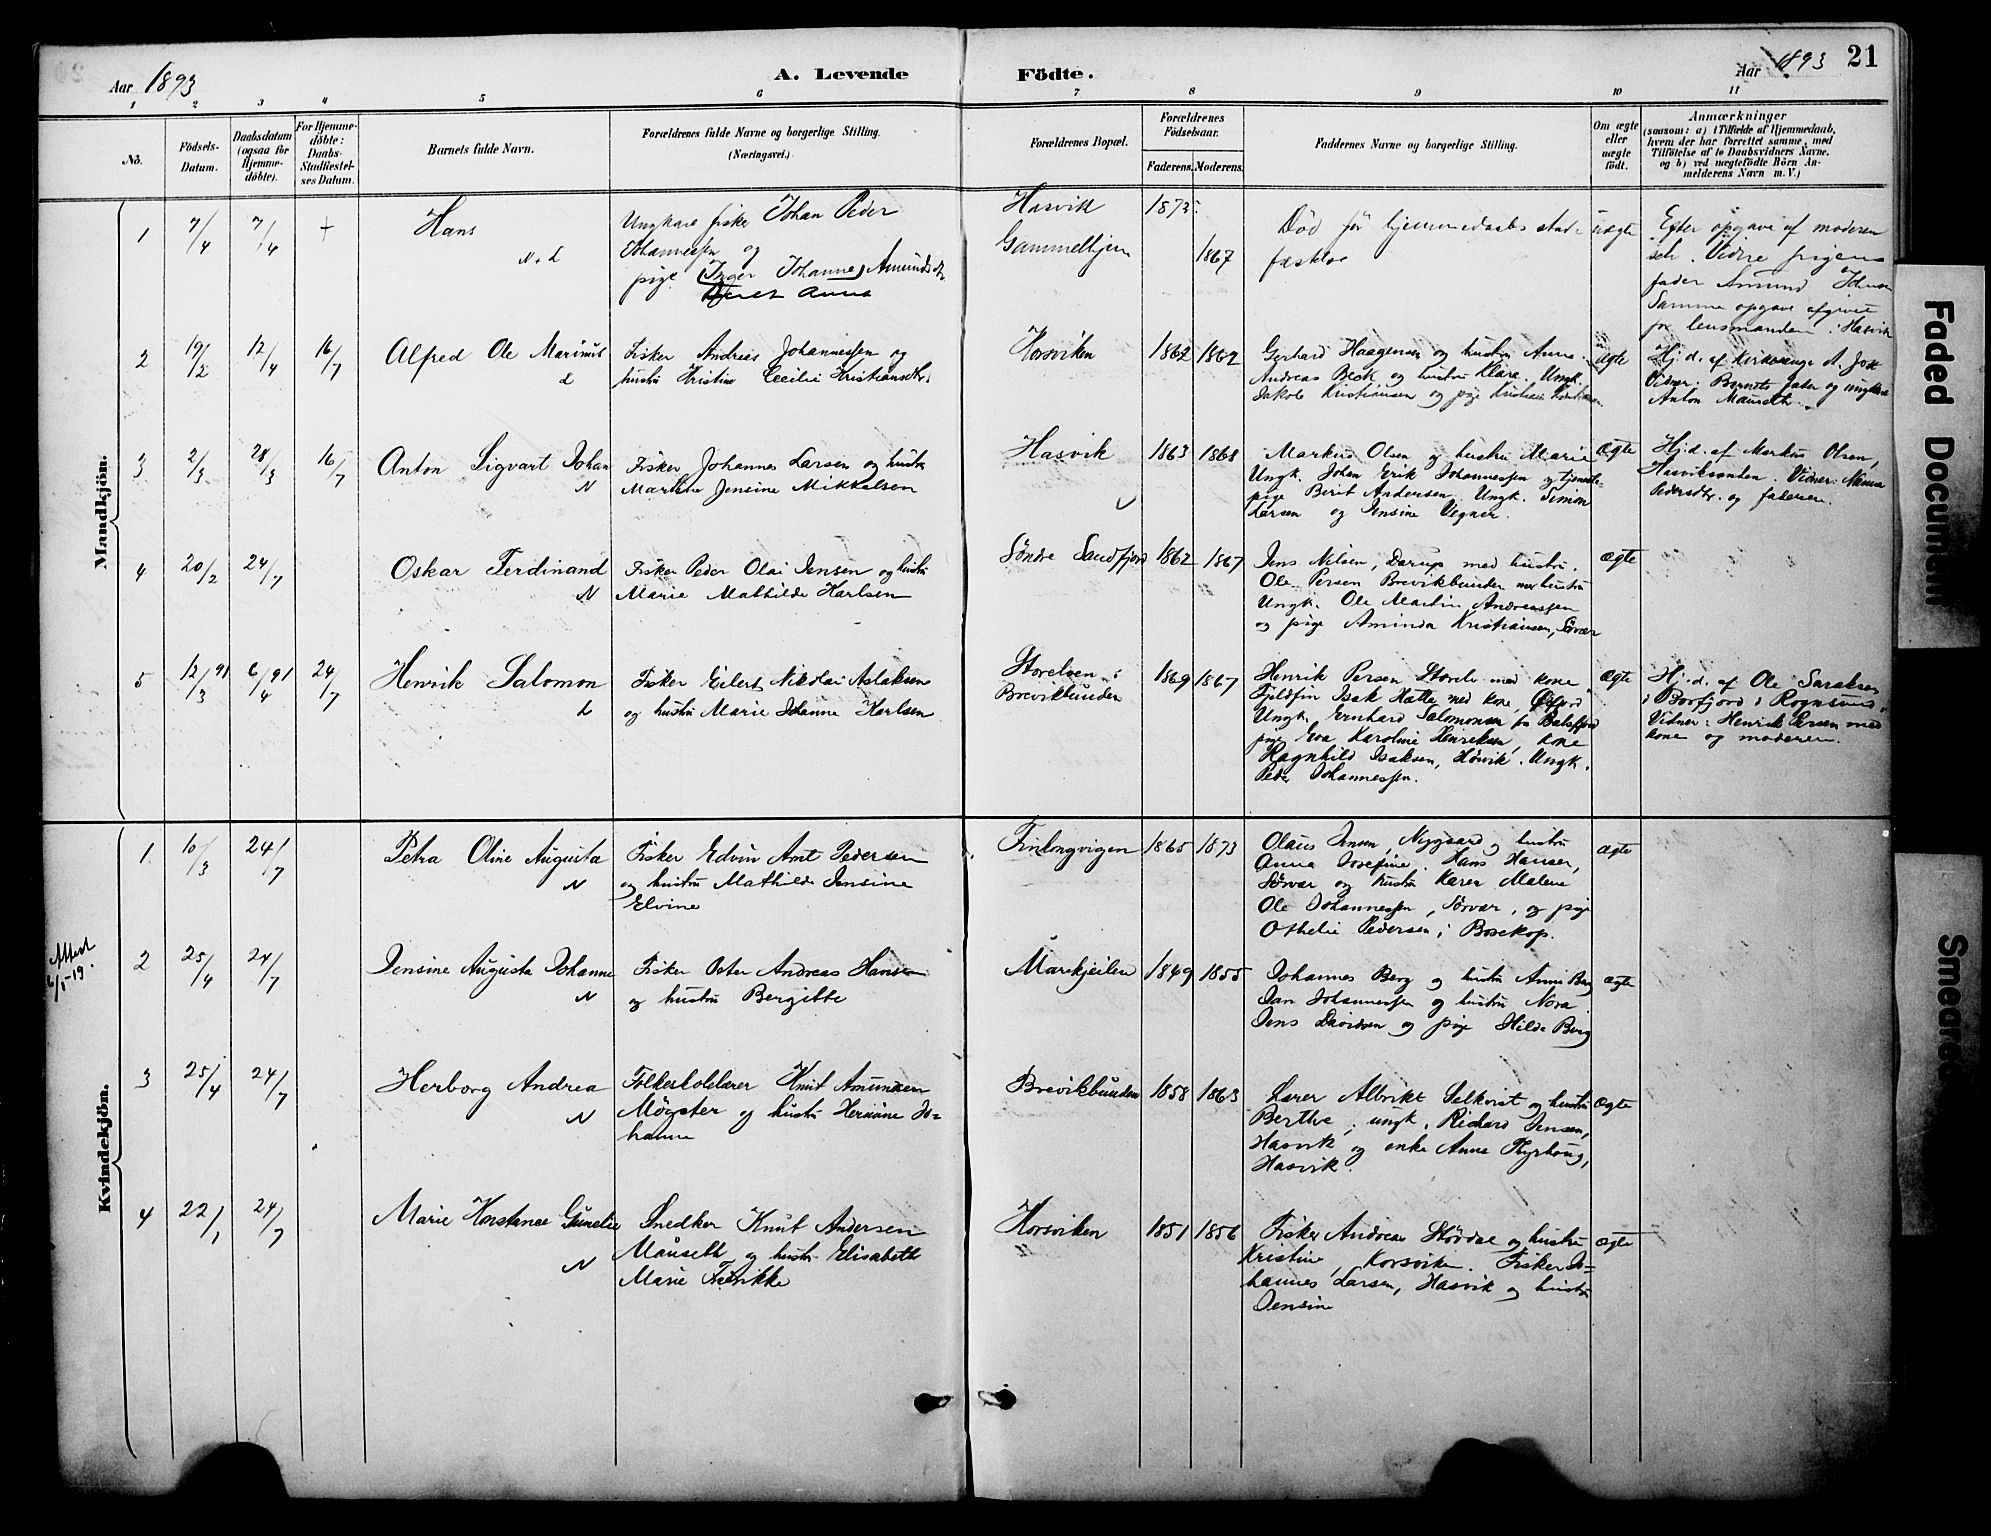 Aar 1893
A. Levende Födte.
Aar 1893 21
1 2 3 4 5 6 7 8 9 10 11
Nô. Födsels-Datum. Daabsdatum (ogsaa for Hjemme-döbte). For Hjemme-döbte: Daabs-Stadfæstel-ses Datum. Barnets fulde Navn. Forældrenes fulde Navne og borgerlige Stilling. (Næringsvei.) Forældrenes Bopæl. Forældrenes Födselsaar. Faderens. Moderens. Faddernes Navne og borgerlige Stilling. Om ægte eller uægte födt. Anmærkninger (saasom: a) i Tilfælde af Hjemmedaab, hvem der har forrettet samme, med Tilföielse af to Daabsvidners Navne, og b) ved uægtefödte Börn An-melderens Navn m. V.)
Mandkjön.
1 7/4 7/4 + Hans N. L
Ungkarl fisker Johan Peder
Johannessen og
pige Inger Johanne Amundsdtr
Hasvik 1873
Gammelhjem 1867
Död før hjemmedaabs stad-
fæstelse
uægte
Efter opgave af moderen
selv. Vidne pigens
fader Amund
Samme opgave afgivet
for lensmanden i Hasvik
2 19/2 12/4 16/7 Alfred Ole Marinus L
Fisker Andreas Johannessen og
hustru Kristine Cecilie Kristiansdtr.
Korsviken 1862 1862
Gerhard Haagensen og hustru Anna.
Andreas Beck og hustru Klara. Ungk.
Jakob Kristiansen og pige Kristine
ægte
Hj.d. af kirkesanger A.
Vidner: Barnets fader og ungkarl
Anton Mauseth.
3 2/3 28/3 16/7 Anton Sigvart Johan N
Fisker Johannes Larsen og hustru
Marthe Jensine Mikkelsen
Hasvik 1863 1868
Markus Olsen og hustru Marie
Ungk. Johan Erik Johannessen og tjeneste-
pige Berit Andersen. Ungk. Simon
Larsen og Jensine Vegner.
Ægte
Hj.d. af Markus Olsen,
Hasviksanden. Vidner:
Pedersdtr. og faderen.
4 20/2 24/7 Oskar Ferdinand N
Fisker Peder Olai Jensen og hustru
Marie Mathilde Karlsen
Søndre Sandfjord 1862 1867
Jens Nilsen, Darup med hustru.
Ole Persen Brevikbunden med hustru
Ungk. Ole Martin Andreassen
og pige Aminda Kristiansen, Sørvær
ægte
5 12/3 91 6/4 91 24/7 Henrik Salomon L
Fisker Eilert Nikolai Aslaksen
og hustru Marie Johanne Karlsen
Storelven i
Brevikbunden 1869 1867
Henrik Persen Storelv med kone
Fjeldfin Isak Hætta med kone, Øxfjord
Ungk. Bernhard Salomonsen fra Balsfjord
pige Eva Karoline Henriksen, kone
Ragnhild Isaksen, Hørvik. Ungk.
Peder Johannessen.
Ægte
Hj.d. af Ole Saraksen
i Borfjord i Rognsund
Vidner: Henrik Persen med
kone og moderen.
Kvindekjön.
1 10/3 24/7 Petra Oline Augusta N
Fisker Edvin Arnt Pedersen
og hustru Mathilde Jensine
Elvine
Finkongvigen 1865 1873
Olaus Jensen, Nygaard og hustru
Anna Josefine. Hans Hansen,
Sørvær og hustru Karen Malene
Ole Johannessen, Sørvær, og pige
Othelie Pedersen i Bosekop.
ægte
Attest
6/1-19.
2 25/4 24/7 Jensine Augusta Johanne N
Fisker Peter Andreas Hansen
og hustru Bergitte
Markjeilen 1849 1855
Johannes Berg og hustru Anne Berg
Jan Johannessen og hustru Nora
Jens Davidsen og pige Hilda Berg
ægte
3 25/4 24/7 Herborg Andrea N
Folkeskolelærer Knut Amundsen
Møgster og hustru Hermine Jo-
hanne
Brevikbunden 1858 1863
Lærer Albrikt Selkvist og hustru
Berthe, ungk. Richard Jensen,
Hasvik og enke Anna Thyrhoug,
Hasvik.
Ægte
4 22/1 24/7 Marie Konstanse Gunelie N
Snedker Knut Andersen
Mauseth og hustru Elisabeth
Marie Fredrikke
Korsviken 1851 1856
Fisker Andreas Stördal og hustru
Kristine, Korsviken. Fisker Jo-
hannes Larsen, Hasvik og hustru
Jensine
ægte
Faded Document
Smeared